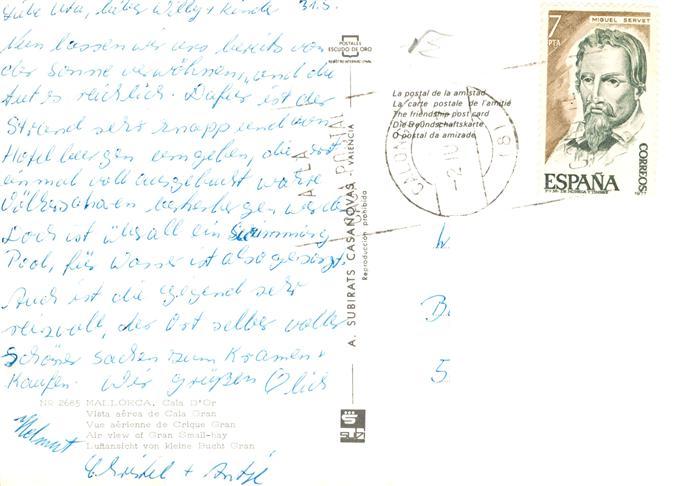 Liebe Uta, lieber Willy + Kinder 31.5.
Nun lassen wir uns bereits von
der Sonne verwöhnen, und die
tut es reichlich. Dafür ist der
Strand sehr knapp und von
Hotelburgen umgeben, die
einmal voll ausgebucht
Völkerscharen beherbergen werden.
Doch ist überall ein Swimming
Pool, für Wasser ist also gesorgt.
Auch ist die Gegend sehr
reizvoll, der Ort selber voller
schöner Sachen zum Kramen +
Kaufen. Wir grüßen ♡lich
Helmut
Christel + Antje
No 2685 MALLORCA. Cala D'Or
Vista aérea de Cala Gran
Vue aérienne de Crique Gran
Air view of Gran Small-bay
Luftansicht von kleine Bucht Gran
POSTALES
ESCUDO DE ORO
A. SUBIRATS CASANOVAS - VALENCIA
Reproducción prohibida
La postal de la amistad
La carte postale de l'amitié
The friendship post card
Die Freundschaftskarte
O postal da amizade
MIGUEL SERVET
7
PTA
CORREOS
ESPAÑA
1977
B.
5